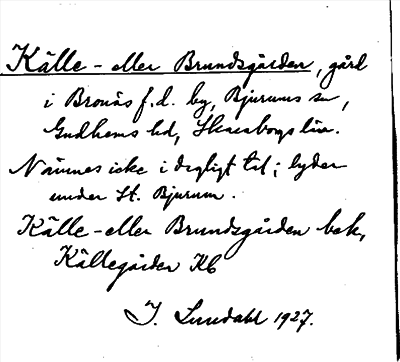 Källe- eller Brundsgården, gård
i Bronäs f.d. by, Bjurums sn,
Gudhems hd, Skaraborgs län.
Nämnes icke i dagligt tal; lyder
under St. Bjurum.
Källe- eller Brundsgården bek,
Källegården Kb
I. Lundahl 1927.